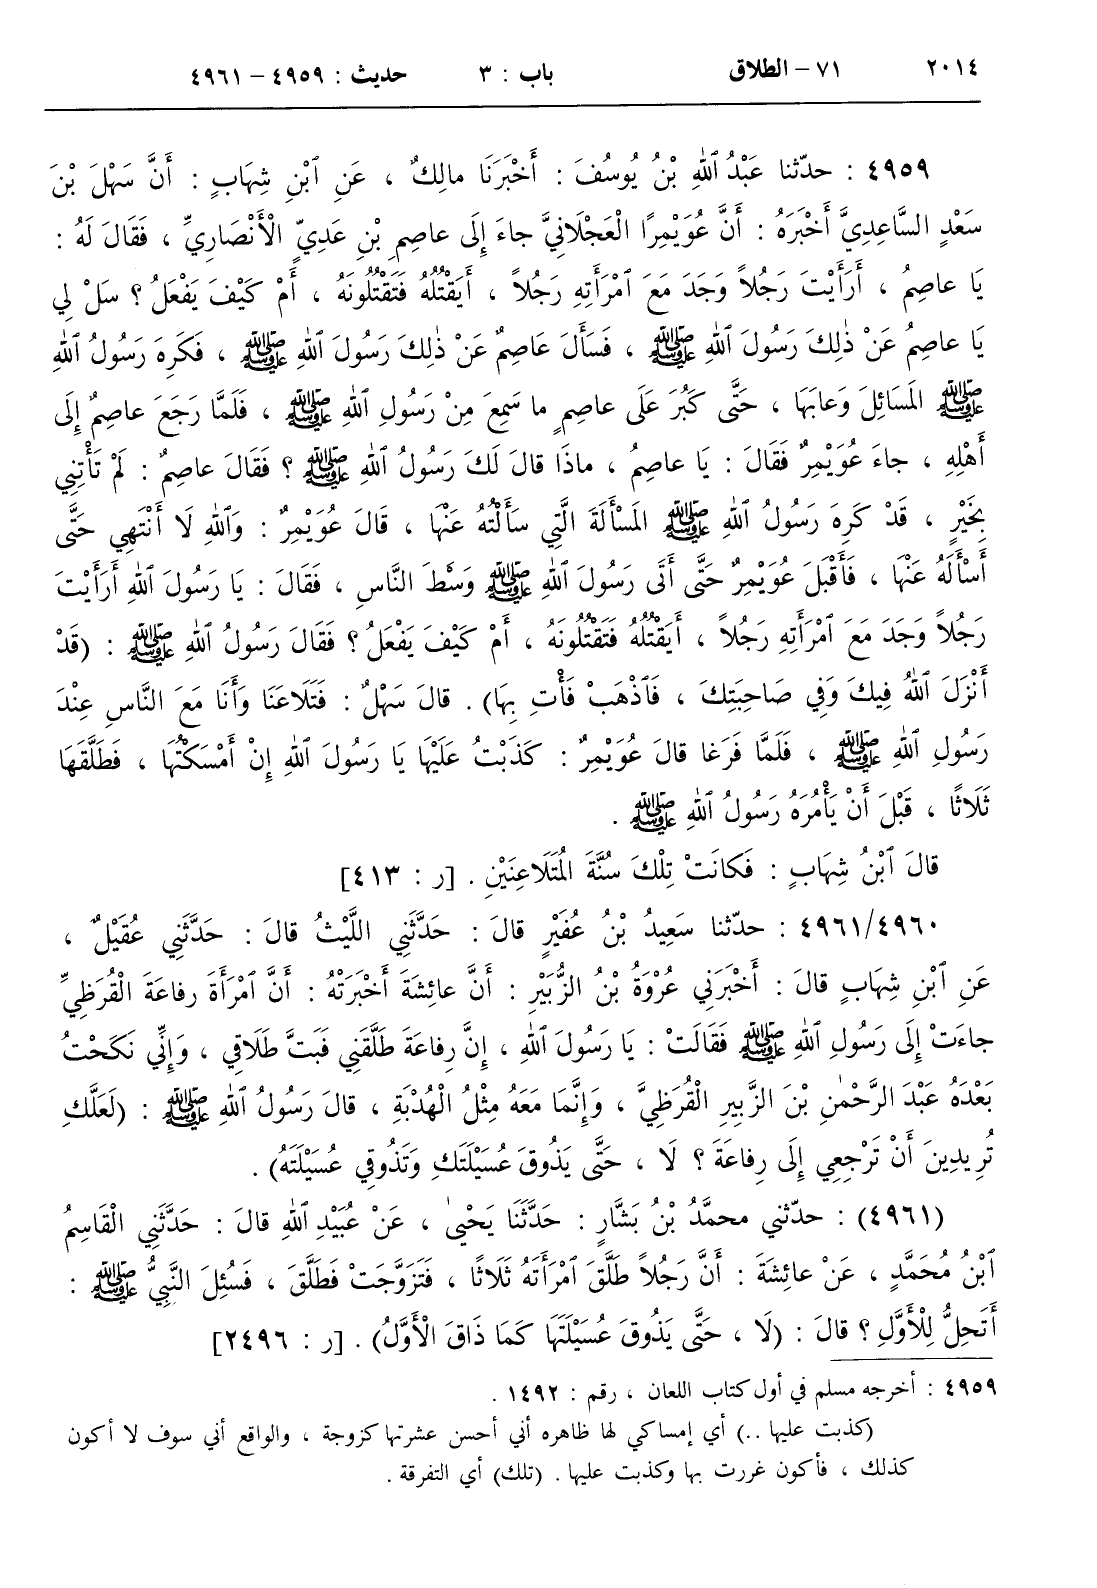 ٢٠١٤ ٧١ – الطلاق باب : ٣ حديث : ٤٩٥٩ – ٤٩٦١
٤٩٥٩ : حدّثنا عَبْدُ ٱللهِ بْنُ يُوسُفَ : أَخْبَرَنَا مالِكٌ ، عَنِ ٱبْنِ شِهَابٍ : أَنَّ سَهْلَ بْنَ
سَعْدٍ السَّاعِدِيَّ أَخْبَرَهُ : أَنَّ عُوَيْمِرًا الْعَجْلَانِيَّ جاءَ إِلَى عاصِمِ بْنِ عَدِيٍّ الْأَنْصَارِيِّ ، فَقَالَ لَهُ :
يَا عاصِمُ ، أَرَأَيْتَ رَجُلاً وَجَدَ مَعَ ٱمْرَأَتِهِ رَجُلاً ، أَيَقْتُلُهُ فَتَقْتُلُونَهُ ، أَمْ كَيْفَ يَفْعَلُ ؟ سَلْ لِي
يَا عاصِمُ عَنْ ذٰلِكَ رَسُولَ ٱللهِ ﷺ ، فَسَأَلَ عَاصِمٌ عَنْ ذٰلِكَ رَسُولَ ٱللهِ ﷺ ، فَكَرِهَ رَسُولُ ٱللهِ
ﷺ المَسَائِلَ وَعابَهَا ، حَتَّى كَبُرَ عَلَى عاصِمٍ ما سَمِعَ مِنْ رَسُولِ ٱللهِ ﷺ ، فَلَمَّا رَجَعَ عاصِمٌ إِلَى
أَهْلِهِ ، جاءَ عُوَيْمِرٌ فَقَالَ : يَا عاصِمُ ، ماذَا قالَ لَكَ رَسُولُ ٱللهِ ﷺ ؟ فَقَالَ عاصِمٌ : لَمْ تَأْتِنِي
بِخَيْرٍ ، قَدْ كَرِهَ رَسُولُ ٱللهِ ﷺ المَسْأَلَةَ الَّتِي سَأَلْتُهُ عَنْهَا ، قالَ عُوَيْمِرٌ : وَٱللهِ لَا أَنْتَهِي حَتَّى
أَسْأَلَهُ عَنْهَا ، فَأَقْبَلَ عُوَيْمِرٌ حَتَّى أَتَى رَسُولَ ٱللهِ ﷺ وَسْطَ النَّاسِ ، فَقَالَ : يَا رَسُولَ ٱللهِ أَرَأَيْتَ
رَجُلاً وَجَدَ مَعَ ٱمْرَأَتِهِ رَجُلاً ، أَيَقْتُلُهُ فَتَقْتُلُونَهُ ، أَمْ كَيْفَ يَفْعَلُ ؟ فَقَالَ رَسُولُ ٱللهِ ﷺ : (قَدْ
أَنْزَلَ ٱللهُ فِيكَ وَفِي صَاحِبَتِكَ ، فَٱذْهَبْ فَأْتِ بِهَا) . قالَ سَهْلٌ : فَتَلَاعَنَا وَأَنَا مَعَ النَّاسِ عِنْدَ
رَسُولِ ٱللهِ ﷺ ، فَلَمَّا فَرَغَا قالَ عُوَيْمِرٌ : كَذَبْتُ عَلَيْهَا يَا رَسُولَ ٱللهِ إِنْ أَمْسَكْتُهَا ، فَطَلَّقَهَا
ثَلَاثًا ، قَبْلَ أَنْ يَأْمُرَهُ رَسُولُ ٱللهِ ﷺ .
قالَ ٱبْنُ شِهَابٍ : فَكانَتْ تِلْكَ سُنَّةَ المُتَلَاعِنَيْنِ . [ر : ٤١٣]
٤٩٦١/٤٩٦٠ : حدّثنا سَعِيدُ بْنُ عُفَيْرٍ قالَ : حَدَّثَنِي اللَّيْثُ قالَ : حَدَّثَنِي عُقَيْلٌ ،
عَنِ ٱبْنِ شِهَابٍ قالَ : أَخْبَرَنِي عُرْوَةُ بْنُ الزُّبَيْرِ : أَنَّ عائِشَةَ أَخْبَرَتْهُ : أَنَّ ٱمْرَأَةَ رِفاعَةَ الْقُرَظِيِّ
جاءَتْ إِلَى رَسُولِ ٱللهِ ﷺ فَقَالَتْ : يَا رَسُولَ ٱللهِ ، إِنَّ رِفاعَةَ طَلَّقَنِي فَبَتَّ طَلَاقِي ، وَإِنِّي نَكَحْتُ
بَعْدَهُ عَبْدَ الرَّحْمٰنِ بْنَ الزَّبِيرِ الْقُرَظِيَّ ، وَإِنَّمَا مَعَهُ مِثْلُ الْهُدْبَةِ ، قالَ رَسُولُ ٱللهِ ﷺ : (لَعَلَّكِ
تُرِيدِينَ أَنْ تَرْجِعِي إِلَى رِفاعَةَ ؟ لَا ، حَتَّى يَذُوقَ عُسَيْلَتَكِ وَتَذُوقِي عُسَيْلَتَهُ) .
(٤٩٦١) : حدّثني محمَّدُ بْنُ بَشَّارٍ : حَدَّثَنَا يَحْيىٰ ، عَنْ عُبَيْدِ ٱللهِ قالَ : حَدَّثَنِي الْقَاسِمُ
ٱبْنُ مُحَمَّدٍ ، عَنْ عائِشَةَ : أَنَّ رَجُلاً طَلَّقَ ٱمْرَأَتَهُ ثَلَاثًا ، فَتَزَوَّجَتْ فَطَلَّقَ ، فَسُئِلَ النَّبِيُّ ﷺ :
أَتَحِلُّ لِلْأَوَّلِ ؟ قالَ : (لَا ، حَتَّى يَذُوقَ عُسَيْلَتَهَا كَمَا ذَاقَ الْأَوَّلُ) . [ر : ٢٤٩٦]
٤٩٥٩ : أخرجه مسلم في أول كتاب اللعان ، رقم : ١٤٩٢ .
(كذبت عليها ..) أي إمساكي لها ظاهره أني أحسن عشرتها كزوجة ، والواقع أني سوف لا أكون
كذلك ، فأكون غررت بها وكذبت عليها . (تلك) أي التفرقة .